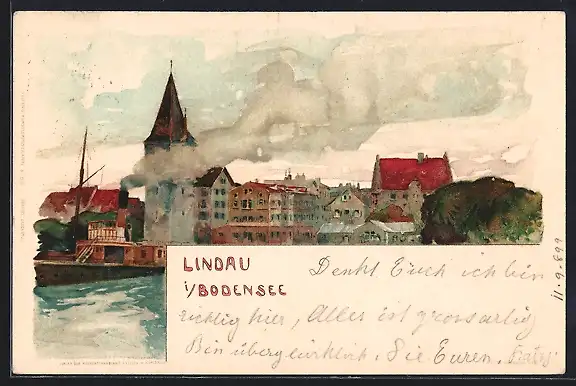 LINDAU
i/BODENSEE
Denkt Euch ich bin
richtig hier, Alles ist grossartig
Bin überglücklich. Die Euren.
11.9.899